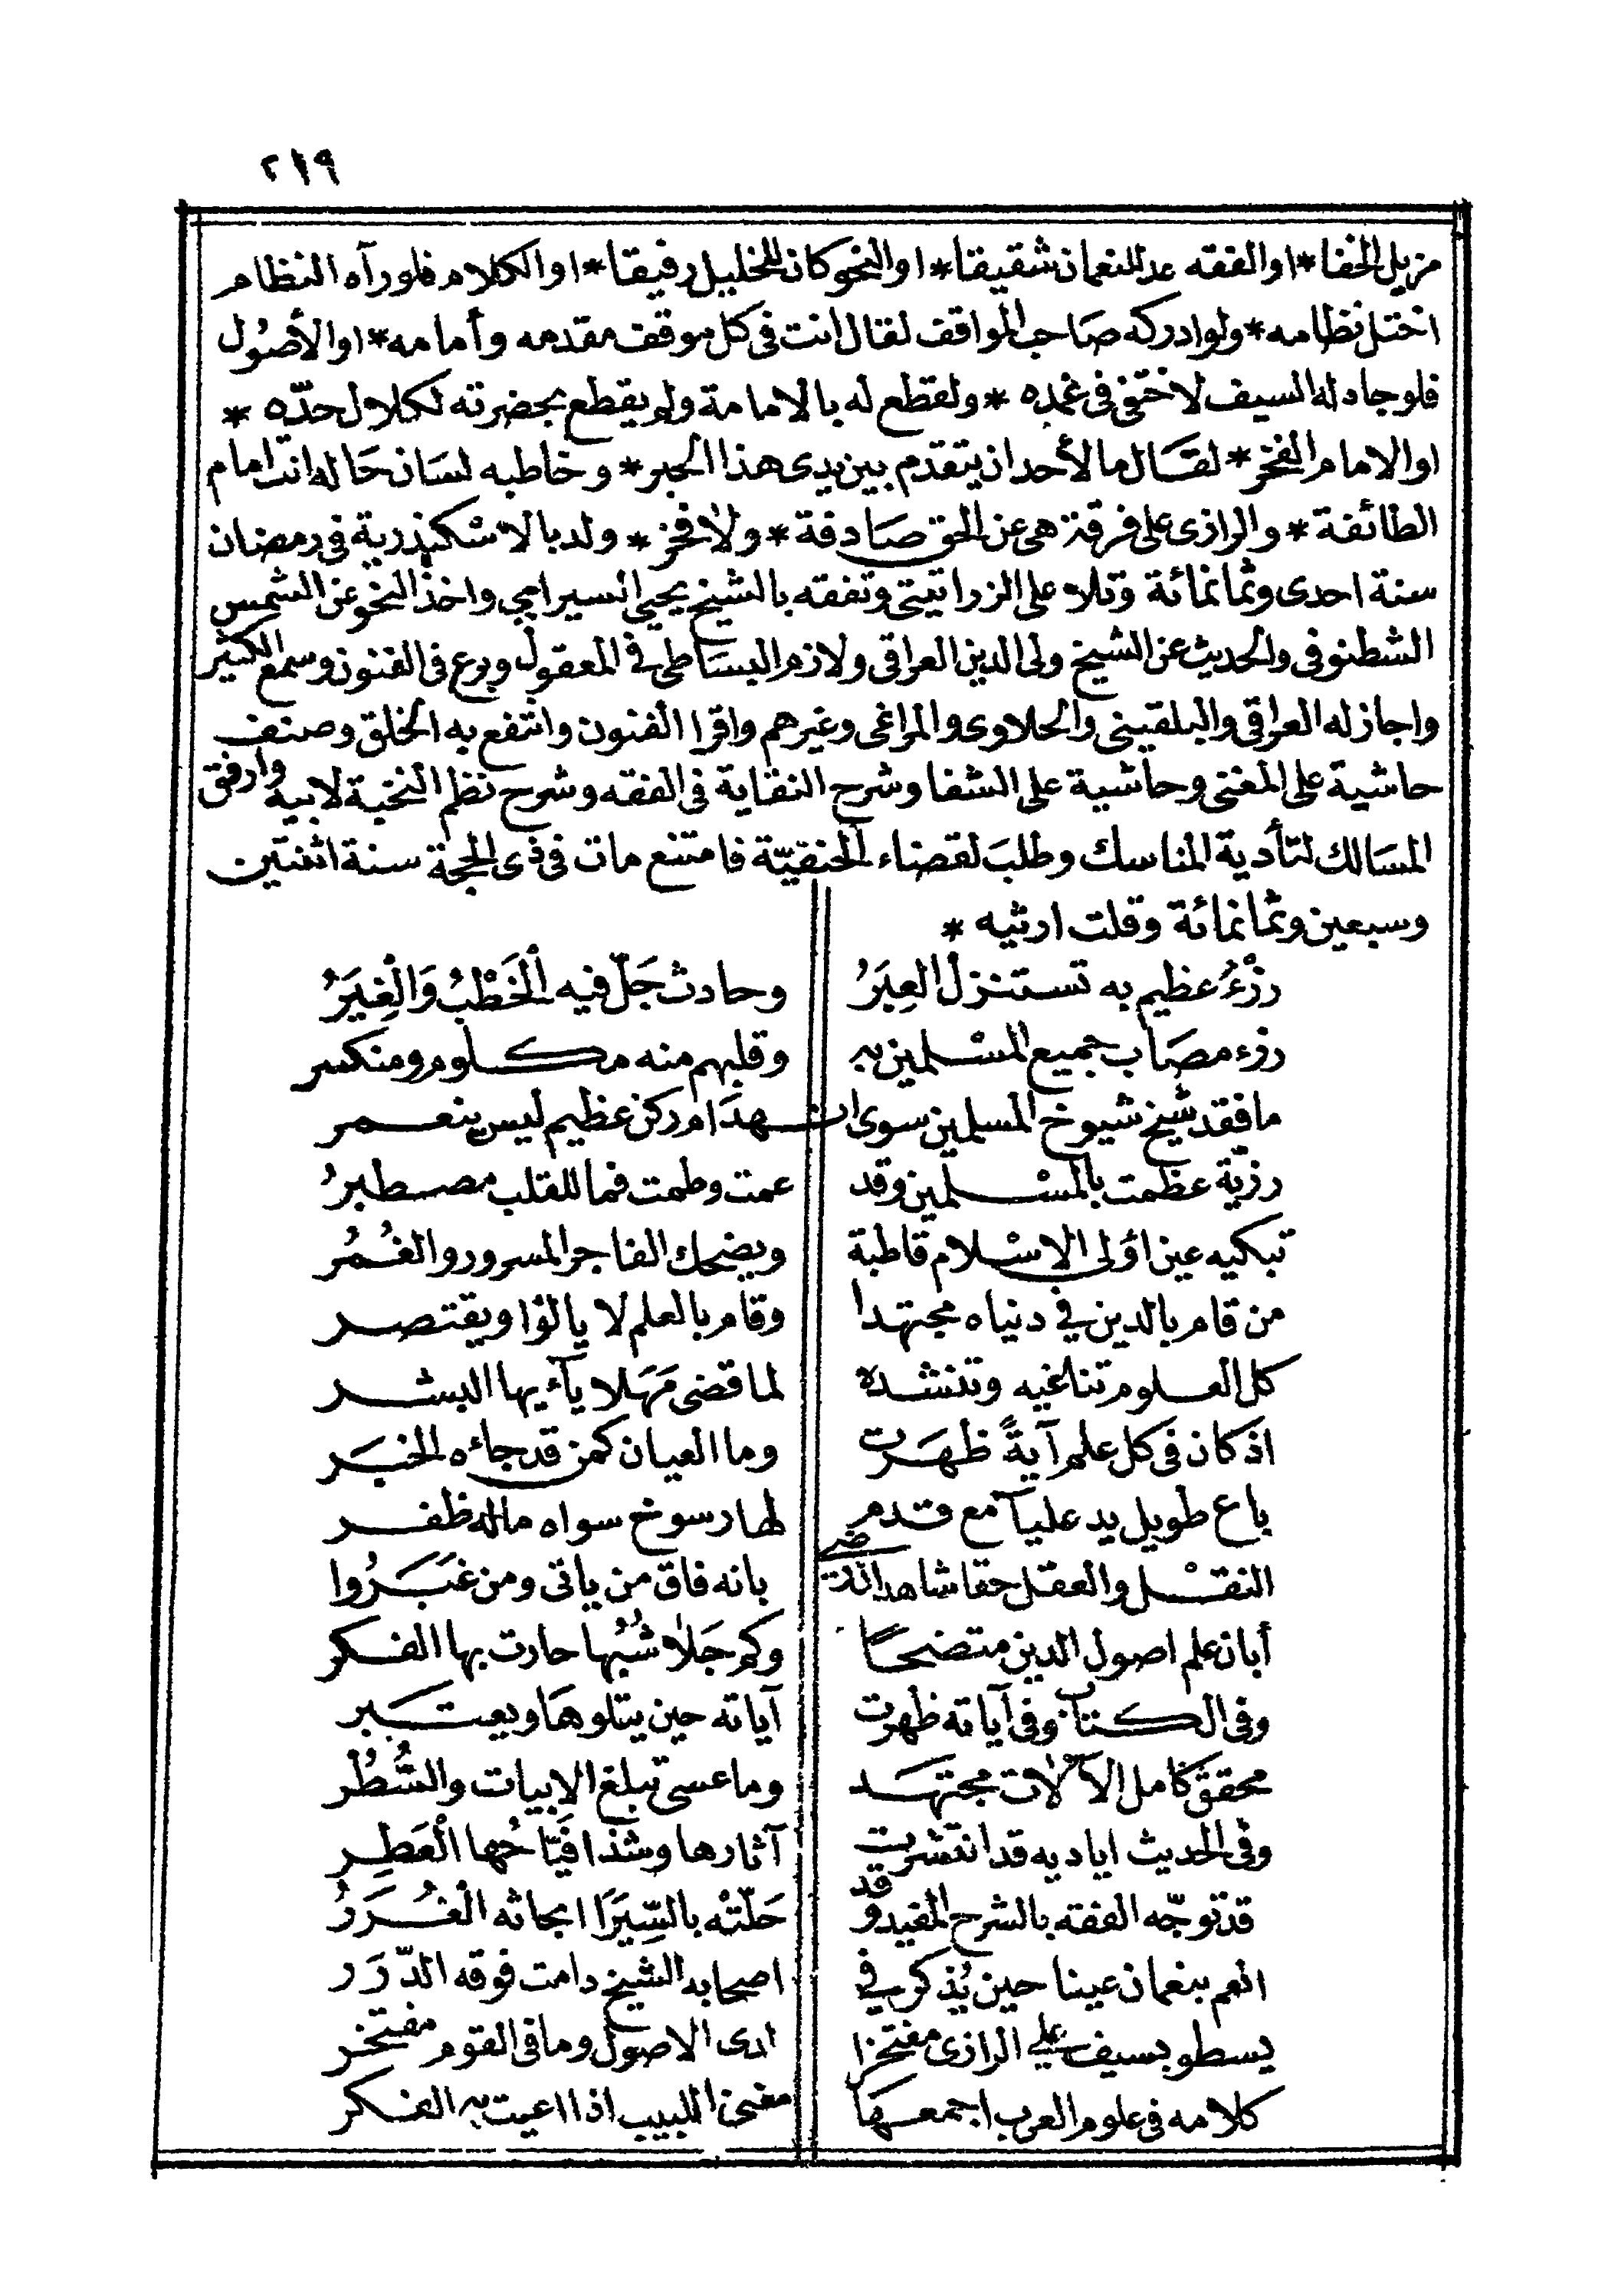 ٢١٩
مزيل الخفا * او الفقه عد للنعمان شقيقا * او النحو كان للخليل رفيقا * او الكلام فلو رآه النظام
اختل نظامه * ولو ادركه صاحب المواقف لقال انت في كل موقف مقدمه وأمامه * او الأصُول
فلو جادله السيف لاختفى في غمده * ولقطع له بالامامة ولم يقطع بحضرته لكلال حدّه *
او الامام الفخر * لقال ما لأحد ان يتقدم بين يدي هذا الحبر * وخاطبه لسان حاله انت امام
الطائفة * والرازي على فرقة هي عن الحق صادفة * ولا فخر * ولد بالاسكندرية في رمضان
سنة احدى وثمانمائة وتلا على الزراتيتى وتفقه بالشيخ يحيى السيرامي واخذ النحو عن الشمس
الشطنوفي والحديث عن الشيخ ولي الدين العراقي ولازم البساطي في المعقول وبرع في الفنون وسمع الكثير
واجاز له العراقي والبلقيني والحلاوى والمراغى وغيرهم واقرا الفنون وانتفع به الخلق وصنف
حاشية على المغنى وحاشية على الشفا وشرح النقاية في الفقه وشرح نظم النخبة لابيه وارفق
المسالك لتأدية المناسك وطلبَ لقضاء الحنفيّة فامتنع مات في ذى الحجة سنة اثنتين
وسبعين وثمانمائة وقلت ارثيه *
رزْءُ عظيم به تستنزل العِبَرُ وحادث جَلّ فيه الخَطْبُ وَالْغِيَرُ
رزء مصاب جميع المسْلمين به وقلبهم منه مكلوم ومنكسر
ما فقد شيخ شيوخ المسلمين سوى انهدَام ركن عظيم ليس ينعمر
رزيّة عظمت بالمسْلمين وقد عمت وطمت فما للقلب مصطبرُ
تبكيه عين اؤلى الاسْلام قاطبة ويضحك الفاجر المسرور والغُمُر
من قام بالدين في دنياه مجتهدا وقام بالعلم لا يالؤا ويقتصر
كل العلوم تناغيه وتنشده لما قضى مَهَلا يآءيها البشر
اذ كان في كل علم آيةً ظهَرت وما العيان كمن قد جاءه الخبَر
باع طويل يد عليآ مع قدم لها رسوخ سواه ماله ظفر
النقْل والعقل حقا شاهدان بانه فاق من ياتى ومن غبَرُوا
أبان علم اصول الدين متضحًا وكم جَلاٰ شُبُها حارت بها الفكر
وفي الكتاب وفي آياته ظهرت آياته حين يتلوهَا ويعتبر
محقق كامل الآلات مجتهد وما عسى تبلغ الابيات والسُّطُرْ
وفي الحديث اياديه قد انتشرت آثارها وشذا فَيّاحُها الْعَطِر
قد توجّه الفقه بالشرح المفيد وقد حَلّتْه بالسِّيَرَا ابحاثه الغُرَرُ
انعم بنعمان عينا حين يُذكر في اصحابه الشيخ دامت فوقه الدّرَر
يسطو بسيف على الرازى مفتخرا لدى الاصول وما في القوم مفتخر
كلامه في علوم العرب اجمعهَا مغنى اللبيب اذا اعيت به الفكر